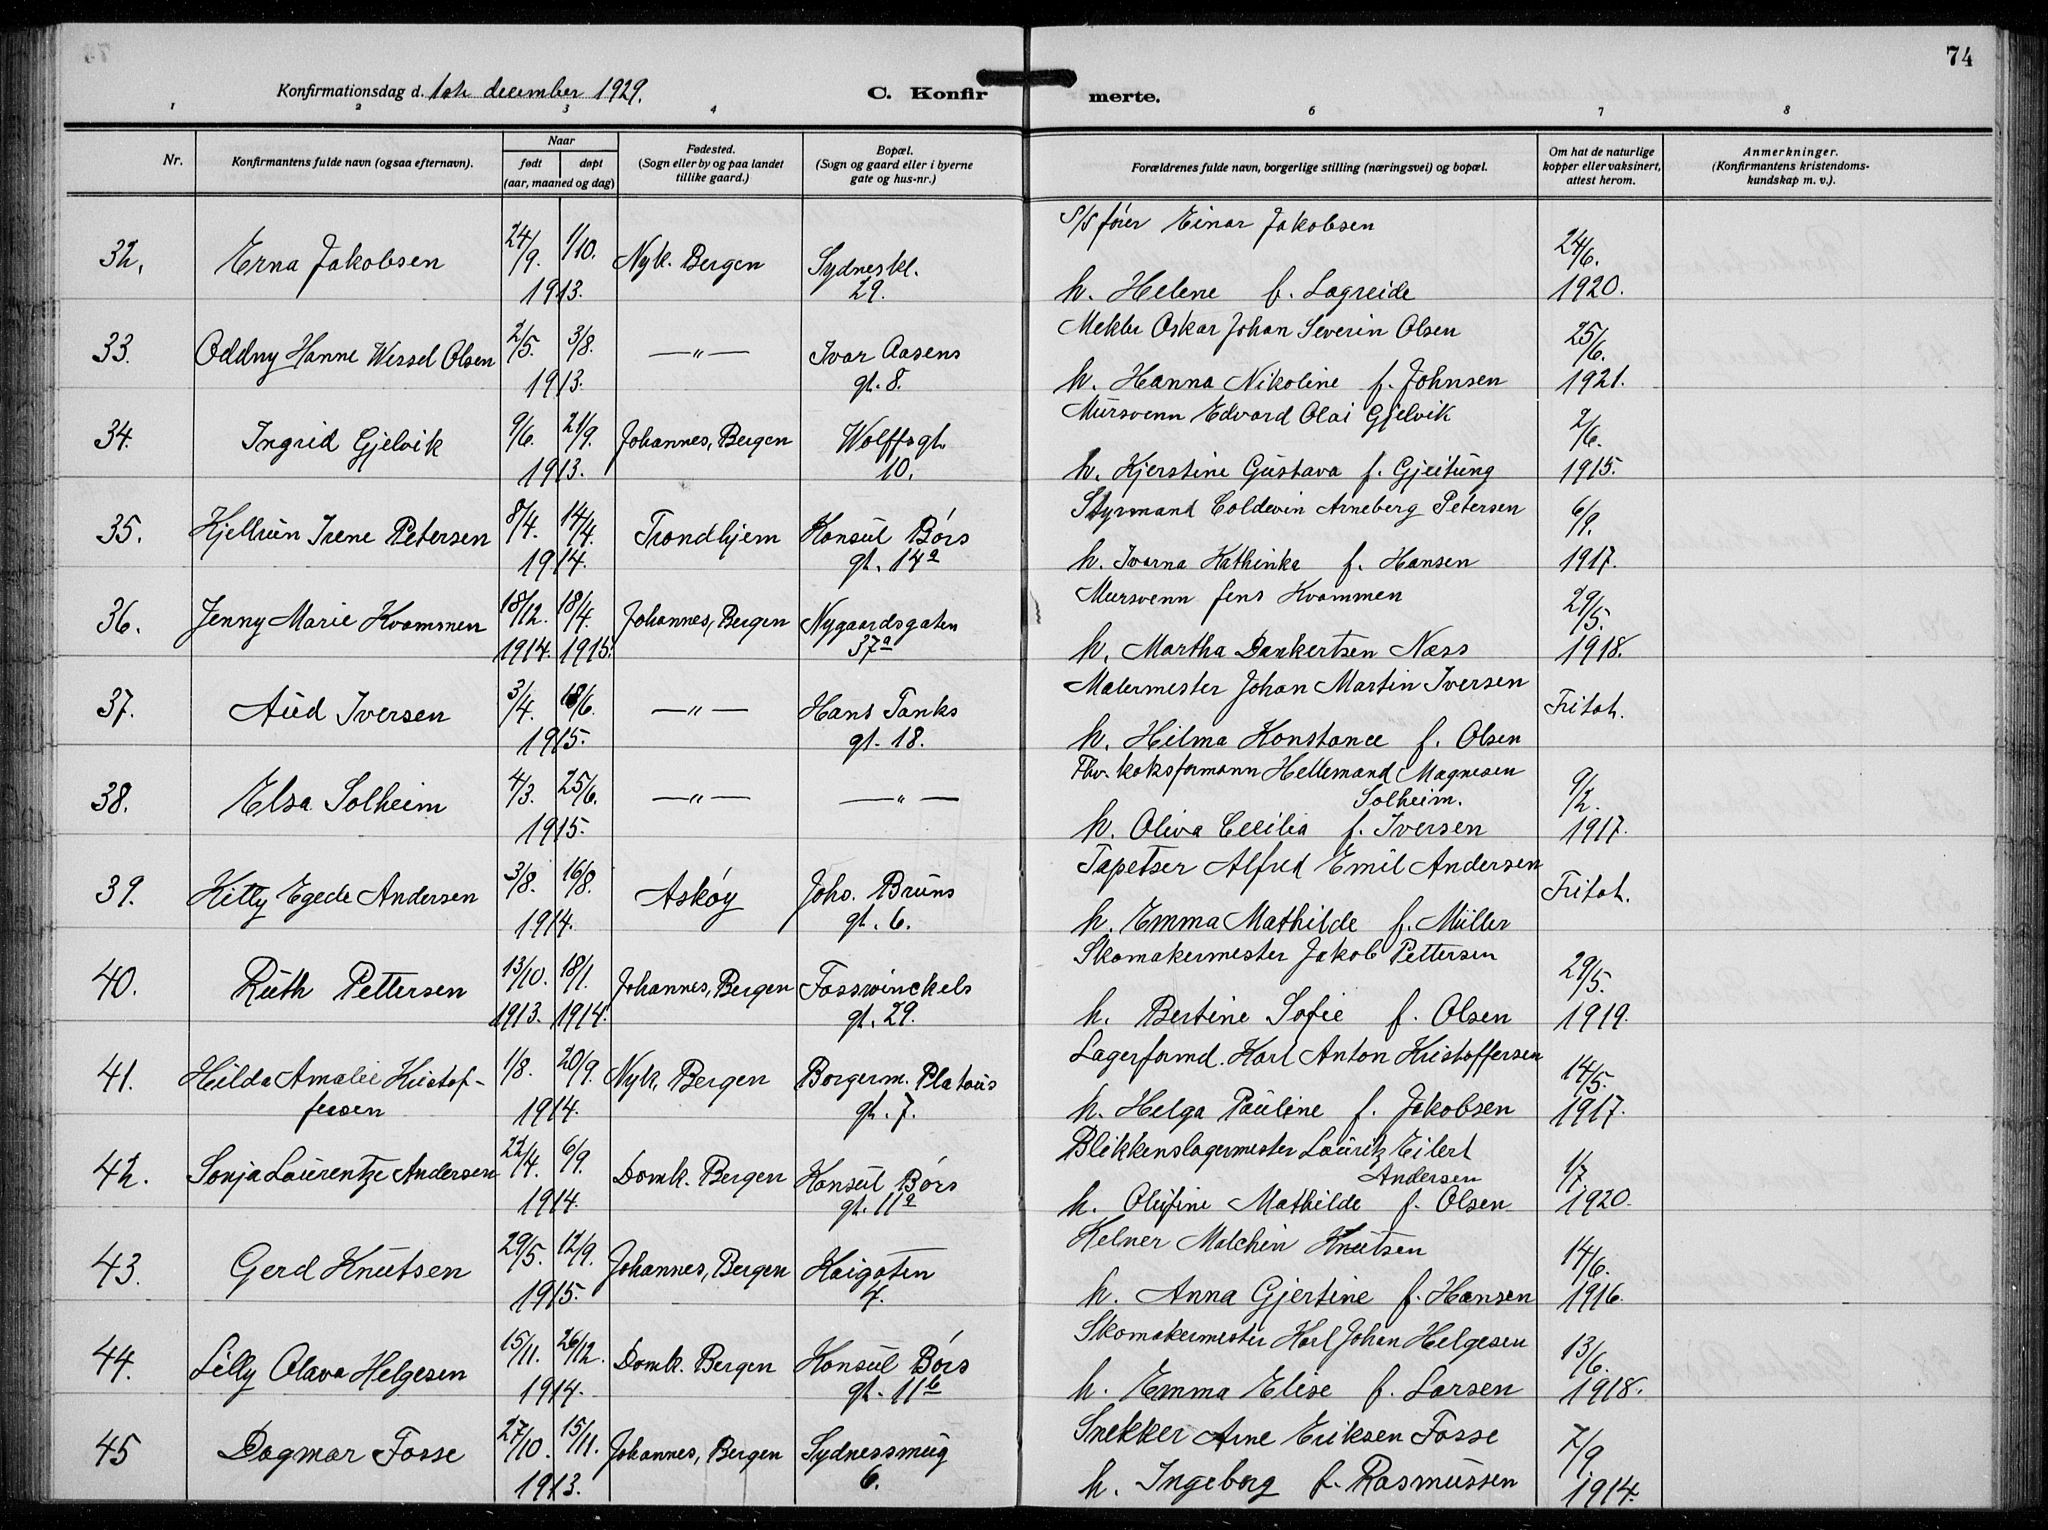 74
Konfirmationsdag d. 1ste december 1929.
C. Konfirmerte.
1 2 3 4 6 7 8
Nr.
Konfirmantens fulde navn (ogsaa efternavn).
Naar
født døpt
(aar, maaned og dag)
Fødested.
(Sogn eller by og paa landet
tillike gaard.)
Bopæl.
(Sogn og gaard eller i byerne
gate og hus-nr.)
Forældrenes fulde navn, borgerlige stilling (næringsvei) og bopæl.
Om hat de naturlige
kopper eller vaksinert,
attest herom.
Anmerkninger.
(Konfirmantens kristendoms-
kundskap m. v.).
S/S fører Einar Jakobsen
32. Erna Jakobsen 24/9. 1/10. Nyk. Bergen Sydneskl. 24/6.
1913. 29. h. Helene f. Lagreide 1920.
Mekkr Oskar Johan Severin Olsen
33. Oddny Hanne Wessel Olsen 2/5. 3/8. —"— Ivar Aasens 25/6.
1913. gt. 8. h. Hanna Nikoline f. Johnsen 1921.
Mursvenn Edvard Olai Gjelvik
34. Ingrid Gjelvik 9/6. 21/9. Johannes, Bergen Wolffsgt. 2/6.
1913. 10. h. Kjerstine Gustava f. Gjeitung 1915.
Styrmand Coldevin Arneberg Petersen
35. Kjellrun Irene Petersen 8/4. 14/4. Trondhjem Konsul Børs 6/9.
1914. gt. 14a h. Ivarna Kathinka f. Hansen 1917.
Mursvenn Jens Kvammen
36. Jenny Marie Kvammen 18/12. 18/4. Johannes, Bergen Nygaardsgaten 29/5.
1914. 1915. 37a h. Martha Dankertsen Næss 1918.
Malermester Johan Martin Iversen
37. Aud Iversen 3/4. 18/6. —"— Hans Tanks Fritat.
1915. gt. 18. h. Hilma Konstance f. Olsen
Fhv. koksformann Hellemand Magnesen
Solheim.
38. Elsa Solheim 4/3. 25/6. —"— —"— 9/2.
1915. h. Oliva Cecilia f. Iversen 1917.
Tapetser Alfred Emil Andersen
39. Kitty Egede Andersen 3/8. 16/8. Askøy Johs. Bruns Fritat.
1914. gt. 6. h. Emma Mathilde f. Müller
Skomakermester Jakob Pettersen
40. Ruth Pettersen 13/10. 18/1. Johannes, Bergen Fosswinckels 29/5.
1913. 1914. gt. 29. h. Bertine Sofie f. Olsen 1919.
Lagerformd. Karl Anton Kristoffersen
41. Hilda Amalie Kristof- 1/8. 20/9. Nyk. Bergen Borgerm. Platous 14/5.
fersen 1914. gt. 7. h. Helga Pauline f. Jakobsen 1917.
Blikkenslagermester Lauritz Eilert
Andersen
42. Sonja Laurentze Andersen 22/4. 6/9. Domk. Bergen Konsul Børs 1/7.
1914. gt. 11a h. Olufine Mathilde f. Olsen 1920.
Kelner Malchin Knutsen
43. Gerd Knutsen 29/5. 12/9. Johannes, Bergen Kaigaten 14/6.
1915. 4. h. Anna Gjertine f. Hansen 1916.
Skomakermester Karl Johan Helgesen
44. Lilly Olava Helgesen 15/11. 26/12. Domk. Bergen Konsul Børs 13/6.
1914. gt. 11b h. Emma Elise f. Larsen 1918.
Snekker Arne Eriksen Fosse
45 Dagmar Fosse 27/10. 15/11. Johannes, Bergen Sydnessmug 7/9
1913. 6. h. Ingeborg f. Rasmussen 1914.